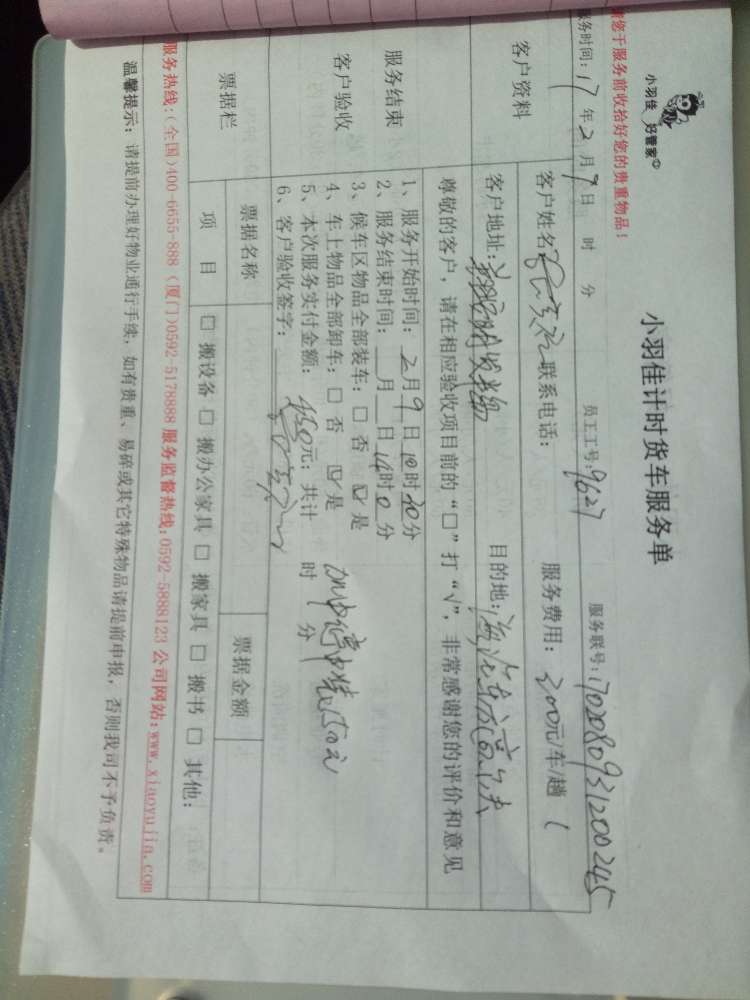 小羽佳 好管家
小羽佳计时货车服务单
请您于服务前收拾好您的贵重物品！
服务联号：1702080931200245
服务时间：17年2月9日 时 分 员工工号：9627
客户资料
客户姓名 联系电话： 服务费用：300元/车/趟（
客户地址： 目的地：
尊敬的客户，请在相应验收项目前的“□”打“√”，非常感谢您的评价和意见
服务结束
客户验收
1、服务开始时间：2月9日10时30分
2、服务结束时间： 月 日14时0分
3、候车区物品全部装车：□ 否 ☑ 是
4、车上物品全部卸车：□ 否 ☑ 是
5、本次服务实付金额：450元；共计 时 分
6、客户验收签字：
票据栏
票据名称 票据金额
项 目 □ 搬设备 □ 搬办公家具 □ 搬家具 □ 搬书 □ 其他：
服务热线：(全国)400-6655-888（厦门)0592-5178888 服务监督热线：0592-5888123 公司网站：www.xiaoyujia.com
温馨提示：请提前办理好物业通行手续，如有贵重、易碎或其它特殊物品请提前申报，否则我司不予负责。